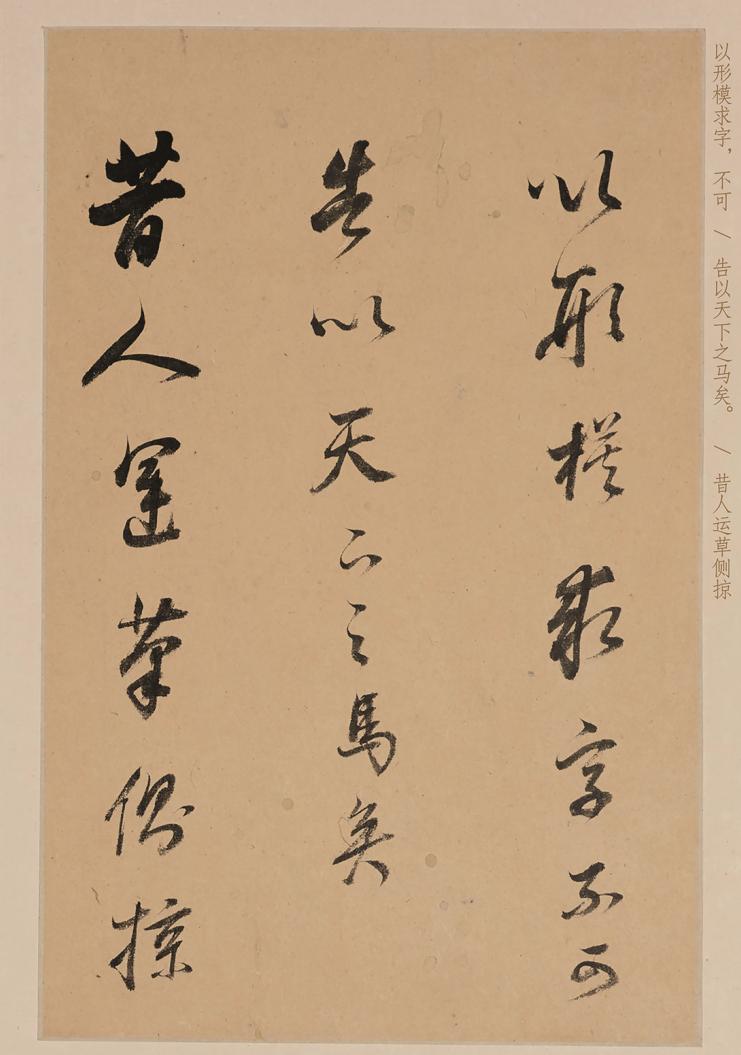 以形模求字，不可 / 告以天下之马矣。 / 昔人运草侧掠
以形模求字不可
告以天下之馬矣
昔人運筆側掠